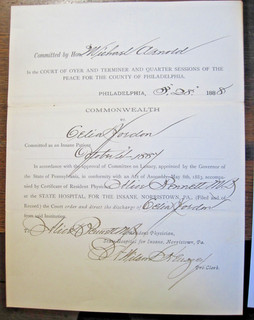 Committed by Hon. Michael Arnold
In the COURT OF OYER AND TERMINER AND QUARTER SESSIONS OF THE
PEACE FOR THE COUNTY OF PHILADELPHIA.
PHILADELPHIA, 188
COMMONWEALTH
vs.
Celia Jordon
Committed as an Insane Patient
October 1887
In accordance with the approval of Committee on Lunacy, appointed by the Governor of
the State of Pennsylvania, in conformity with an Act of Assembly May 8th, 1883, recommended
by Certificate of Resident Physician Alice Bennett M.D.
at the STATE HOSPITAL FOR THE INSANE, NORRISTOWN, PA., (Filed and of
Record) the Court order and direct the discharge of Celia Jordon
from said Institution.
To Alice Bennett M.D.
Resident Physician,
State Hospital, for Insane, Norristown, Pa.
Clerk